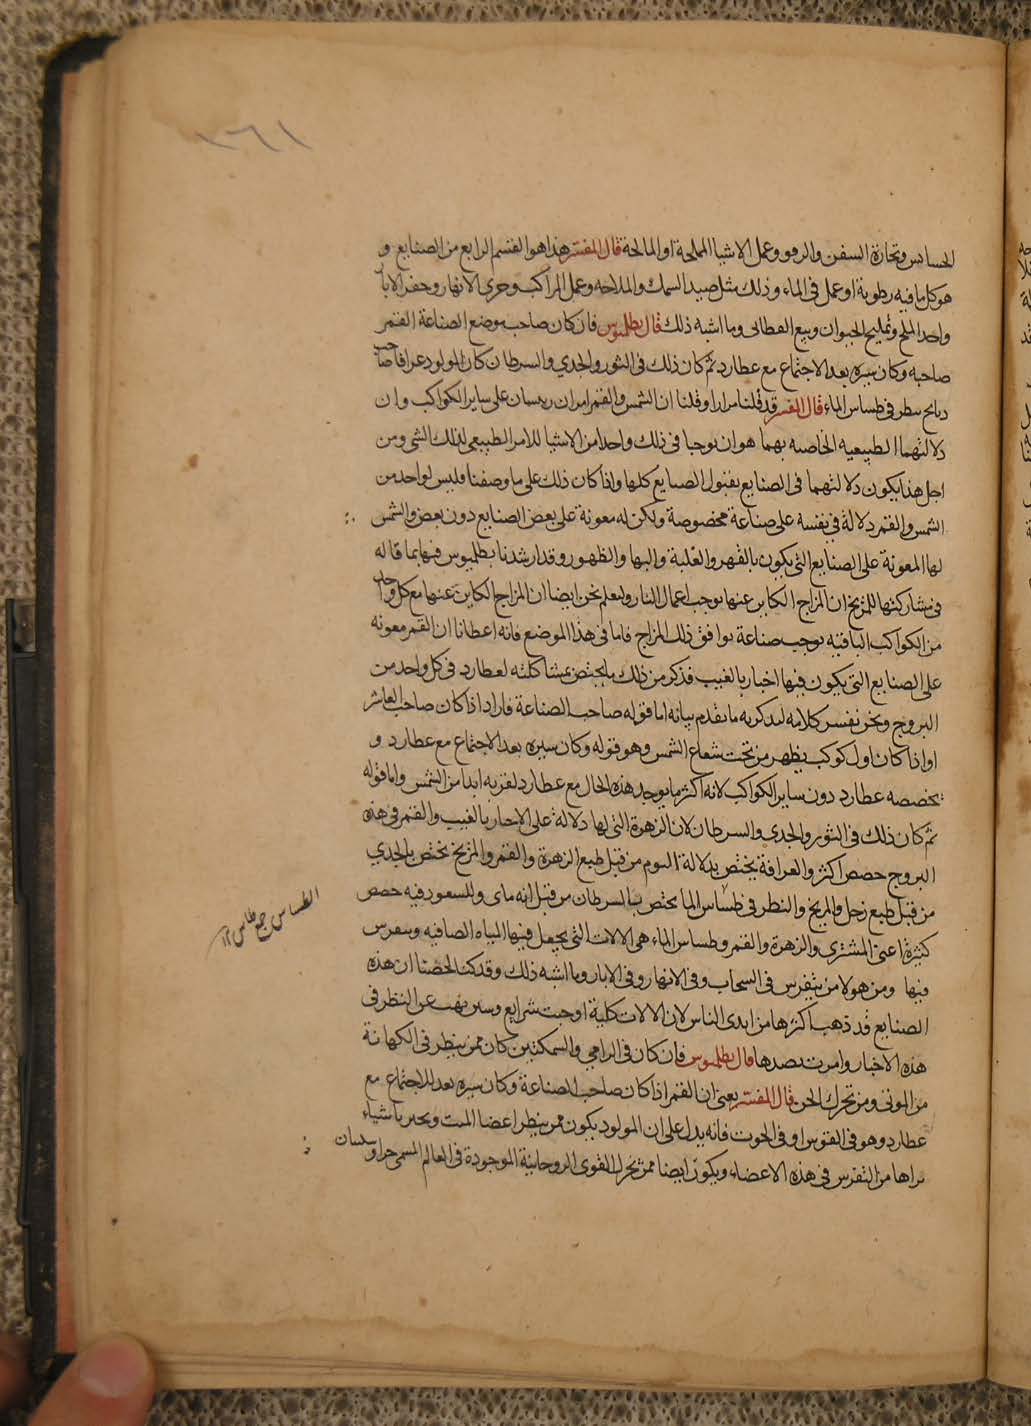 ١٦١
الحسايس وتجارة السفن والرفو وعمل الاشيا المملحة او المالحة قال المفسر هذا هو القسم الرابع من الصنايع و
هو كل ما فيه رطوبة او عمل في الماء وذلك مثل صيد السمك والملاحه وعمل المراكب وحرى الانهار وحفر الابار
واحد الملح وتمليح الحيوان وبيع القطاني وما اشبه ذلك قال بطلميوس فان كان صاحب موضع الصناعة القمر
صاحبه وكان سيره بعد الاجتماع مع عطارد ثم كان ذلك في الثور والجدي والسرطان كان المولود عرافا صاحب
دبايح ينظر في طساس الماء قال المفسر قد قلنا مرارا وقلنا ان الشمس والقمر امران ريسان على ساير الكواكب وان
دلالتهما الطبيعيه الخاصه بهما هو ان يوجبا في ذلك واحدا من الاشيا للامر الطبيعي لذلك الشي ومن
اجل هذا يكون دلالتهما في الصنايع بقبول الصنايع كلها واذا كان ذلك على ما وصفنا فليس لواحد من
الشمس والقمر دلالة في نفسه على صناعة مخصوصة ولكن له معونة على بعض الصنايع دون بعض والشمس
لها المعونة على الصنايع التي يكون بالقهر والغلبة والبها والظهور وقد ارشدنا بطلميوس فيها بما قاله
في مشاركتها للمريخ ان المزاج الكاين عنها يوجب اعمال النار ويعلم نحن ايضا ان المزاج الكاين عنها مع كل واحد
من الكواكب الباقيه يوجب صناعة يوافق ذلك المزاج فاما في هذا الموضع فانه اعطانا ان القمر معونه
على الصنايع التي يكون فيها اخبار بالغيب فذكر من ذلك ما يختص بمشاكلته لعطارد في كل واحد من
البروج ونحن نفسر كلامه لنذكر به ما تقدم بيانه اما قوله صاحب الصناعة فاراد اذا كان صاحب العاشر
او اذا كان اول كوكب يظهر من تحت شعاع الشمس وهو قوله وكان سيره بعد الاجتماع مع عطارد و
تخصصه عطارد دون ساير الكواكب لانه اكثر ما يوجد هذه الحال مع عطارد لقربه ابدا من الشمس واما قوله
ثم كان ذلك في الثور والجدي والسرطان لان الزهرة التي لها دلالة على الاخبار بالغيب والقمر في هذه
البروج حصص اكثر والعرافة يختص بدلالة الثور من قبل طبع الزهرة والقمر والمريخ يختص بالجدي
من قبل طبع زحل والمريخ والنظر في طساس الما يختص بالسرطان من قبل انه ماى وللسعود فيه حصص
كثيرة اعنى المشتري والزهرة والقمر وطساس الماء هي الالات التي يجعل فيها المياه الصافيه وينفرس
فيها ومن هولا من يتفرس في السحاب وفي الانهار وفي الابار وما اشبه ذلك وقد كنا لخصنا ان هذه
الصنايع قد ذهب اكثرها من ايدى الناس لان الالات كلية اوجبت شرايع وسنن نهت عن النظر في
هذه الاخبار وامرت بصدها قال بطلميوس فان كان في الرامي والسمكتين كان ممن ينظر في الكهانة
من الموتى ومن تحرك الجن قال المفسر يعنى ان القمر اذا كان صاحب الصناعة وكان سيره بعد الاجتماع مع
عطارد وهو في القوس او في الحوت فانه يدل على ان المولود يكون ممن ينظر اعضا الميت ويخبر باشياء
يراها من التفرس في هذه الاعضاء ويكون ايضا ممن يحرك القوى الروحانية الموجودة في العالم المسمى جزاو سلسان
الطساس جمع طاس ١٢